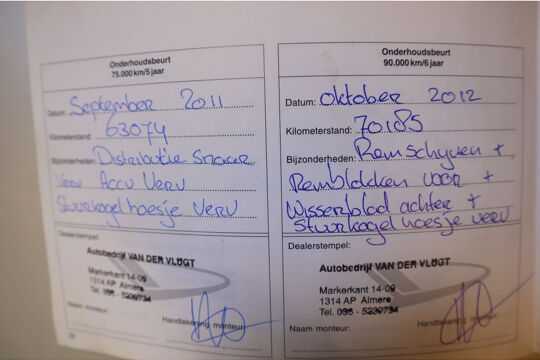 Onderhoudsbeurt
75.000 km/5 jaar
Datum: September 2011
Kilometerstand: 63074
Bijzonderheden: Distributie snaar
Verv Accu Verv
Stuurkogel hoesje verv
Dealerstempel:
Autobedrijf VAN DER VLUGT
Markerkant 14-09
1314 AP Almere
Tel. 036 - 5299734
Naam monteur:
Handtekening monteur:
Onderhoudsbeurt
90.000 km/6 jaar
Datum: oktober 2012
Kilometerstand: 70185
Bijzonderheden: Remschyven +
Remblokken voor +
Wisserblad achter +
stuurkogel hoesje verv
Dealerstempel:
Autobedrijf VAN DER VLUGT
Markerkant 14-09
1314 AP Almere
Tel. 036 - 5299734
Naam monteur:
Handtekening monteur: